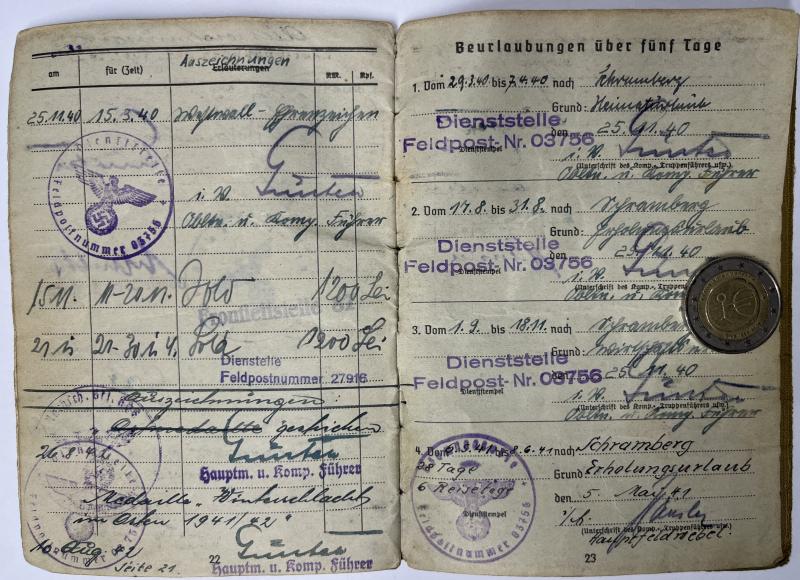 Auszeichnungen
am für (Zeit) Erläuterungen RM. Rpf.
25.11.40 15.3.40 Westwall-Ehrenzeichen
Dienststelle
Feldpostnummer 03756
i. V. Günter
Obltn. u. Komp. Führer
15.11. 11.-20.11. Sold 1200 Lei
Frontleitstelle
21. 21.-30. Sold 1200 Lei
Dienststelle
Feldpostnummer 27916
Auszeichnungen:
gestrichen
26.8.42 Günter
Hauptm. u. Komp. Führer
Medaille "Winterschlacht
im Osten 1941/42"
10. Aug. 42 Günter
Hauptm. u. Komp. Führer
Seite 21.
22
Beurlaubungen über fünf Tage
1. Vom 29.3.40 bis 7.4.40 nach Schramberg
Grund: Heimaturlaub
Dienststelle
Feldpost-Nr. 03756
den 25.11.40
Dienststempel
i. V. Günter
(Unterschrift des Komp.-, Truppenführers usw.)
Obltn. u. Komp. Führer
2. Vom 17.8. bis 31.8. nach Schramberg
Grund: Erholungsurlaub
Dienststelle
Feldpost-Nr. 03756
den 25.11.40
Dienststempel
i. V.
(Unterschrift des Komp.-, Truppenführers
Obltn. u. Kom
3. Vom 1.9. bis 18.11. nach Schramberg
Grund:
Dienststelle
Feldpost-Nr. 03756
den 25.11.40
Dienststempel
i. V. Günter
(Unterschrift des Komp.-, Truppenführers usw.)
Obltn. u. Komp. Führer
4. Vom bis 8.6.41 nach Schramberg
28 Tage
Grund: Erholungsurlaub
6 Reisetage
den 5. Mai 41
Dienststempel
Feldpostnummer 03756
(Unterschrift des Komp.-, Truppenführers usw.)
Hauptfeldwebel.
23